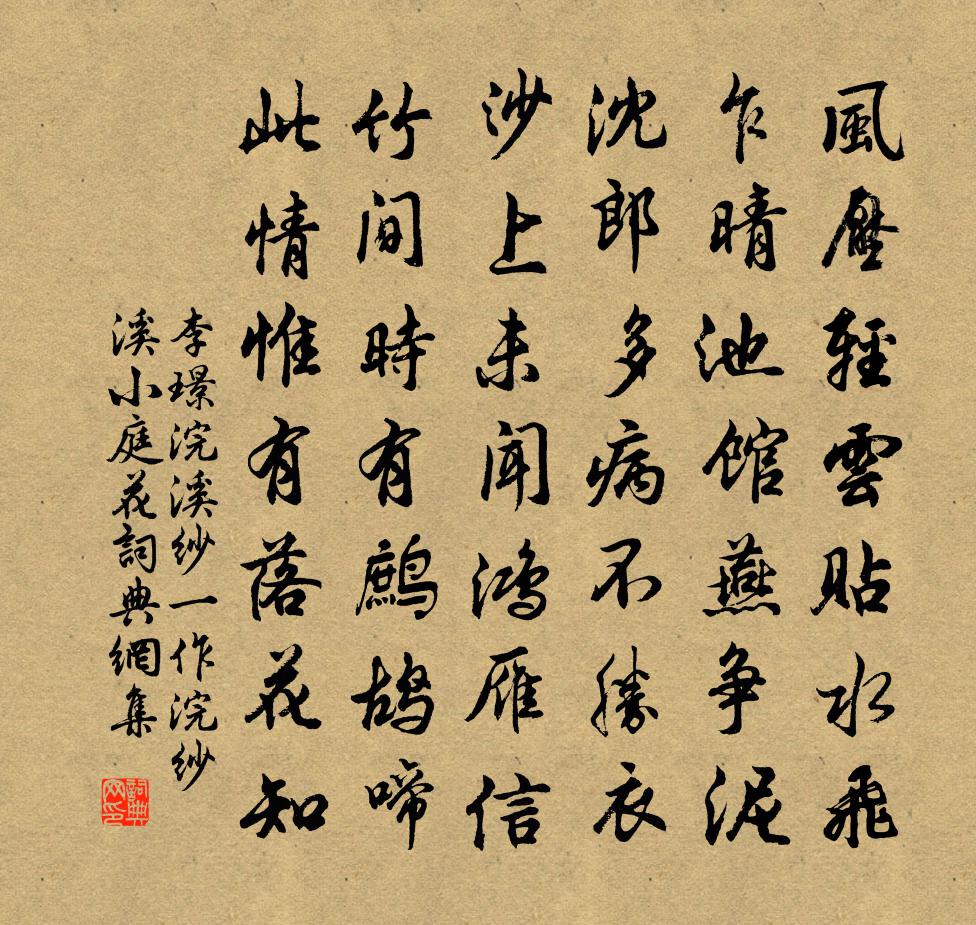 風壓輕雲貼水飛
乍晴池館燕爭泥
沈郎多病不勝衣
沙上未聞鴻雁信
竹間時有鷓鴣啼
此情惟有落花知
李璟浣溪紗一作浣紗
溪小庭花詞典網集
詞典网印